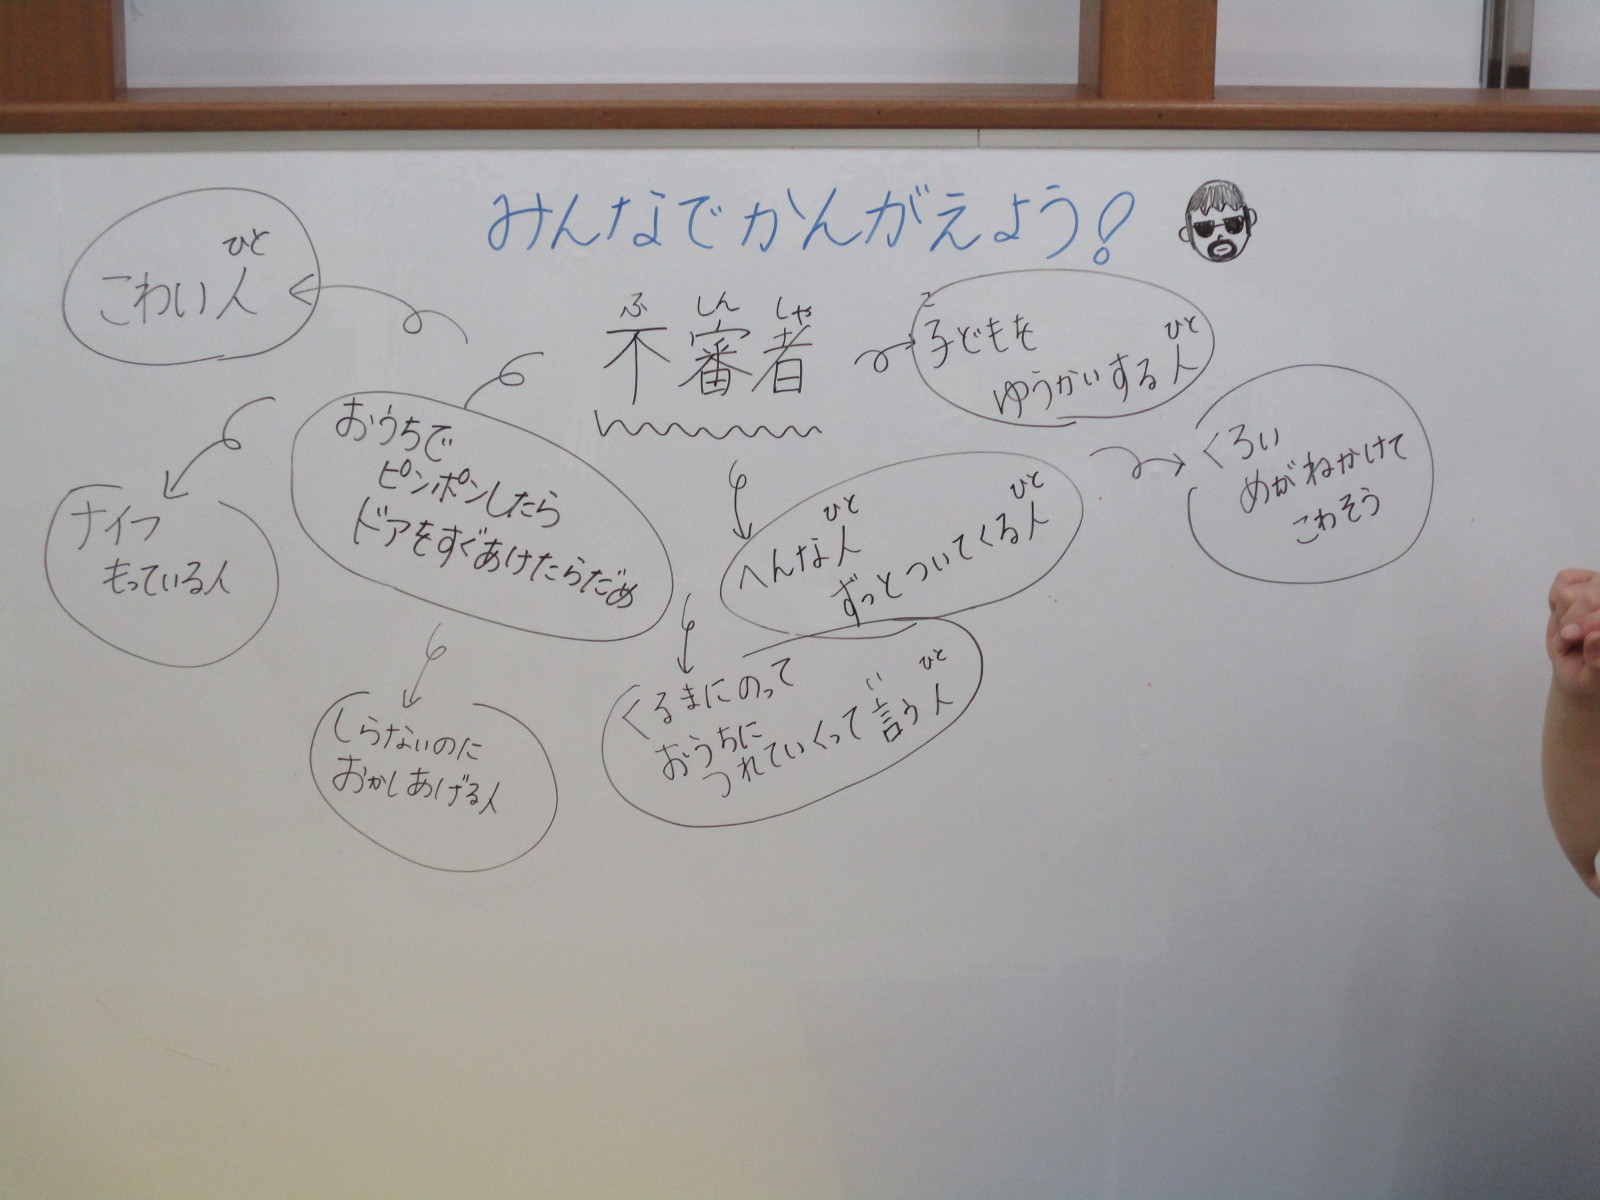 みんなでかんがえよう!
ふ しん しゃ
不審者
ひと
こわい人
こ
子どもを
ひと
ゆうかいする人
くろい
めがねかけて
こわそう
おうちで
ピンポンしたら
ドアをすぐあけたらだめ
ナイフ
もっている人
ひと
へんな人
ひと
ずっとついてくる人
くるまにのって
おうちに
い ひと
つれていくって言う人
しらないのに
おかしあげる人